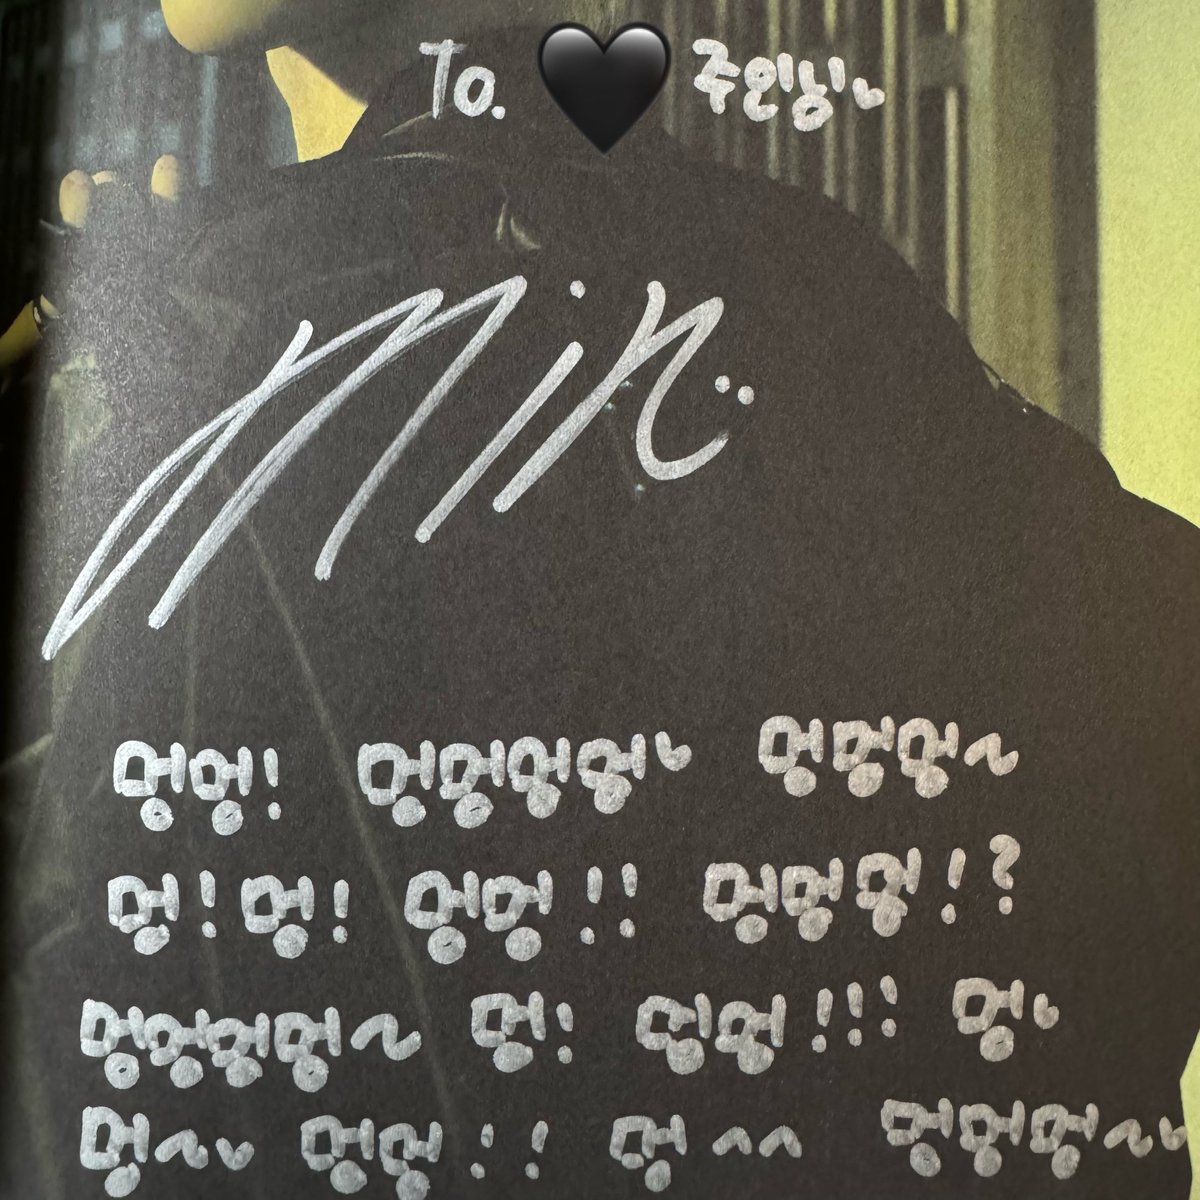 To. 🖤 주인님♡
Min..
멍멍! 멍멍멍멍♡ 멍멍멍~
멍!멍! 멍멍!! 멍멍멍!?
멍멍멍멍~ 멍! 멍멍!!! 멍♡
멍~♡ 멍멍!! 멍^^ 멍멍멍~♡